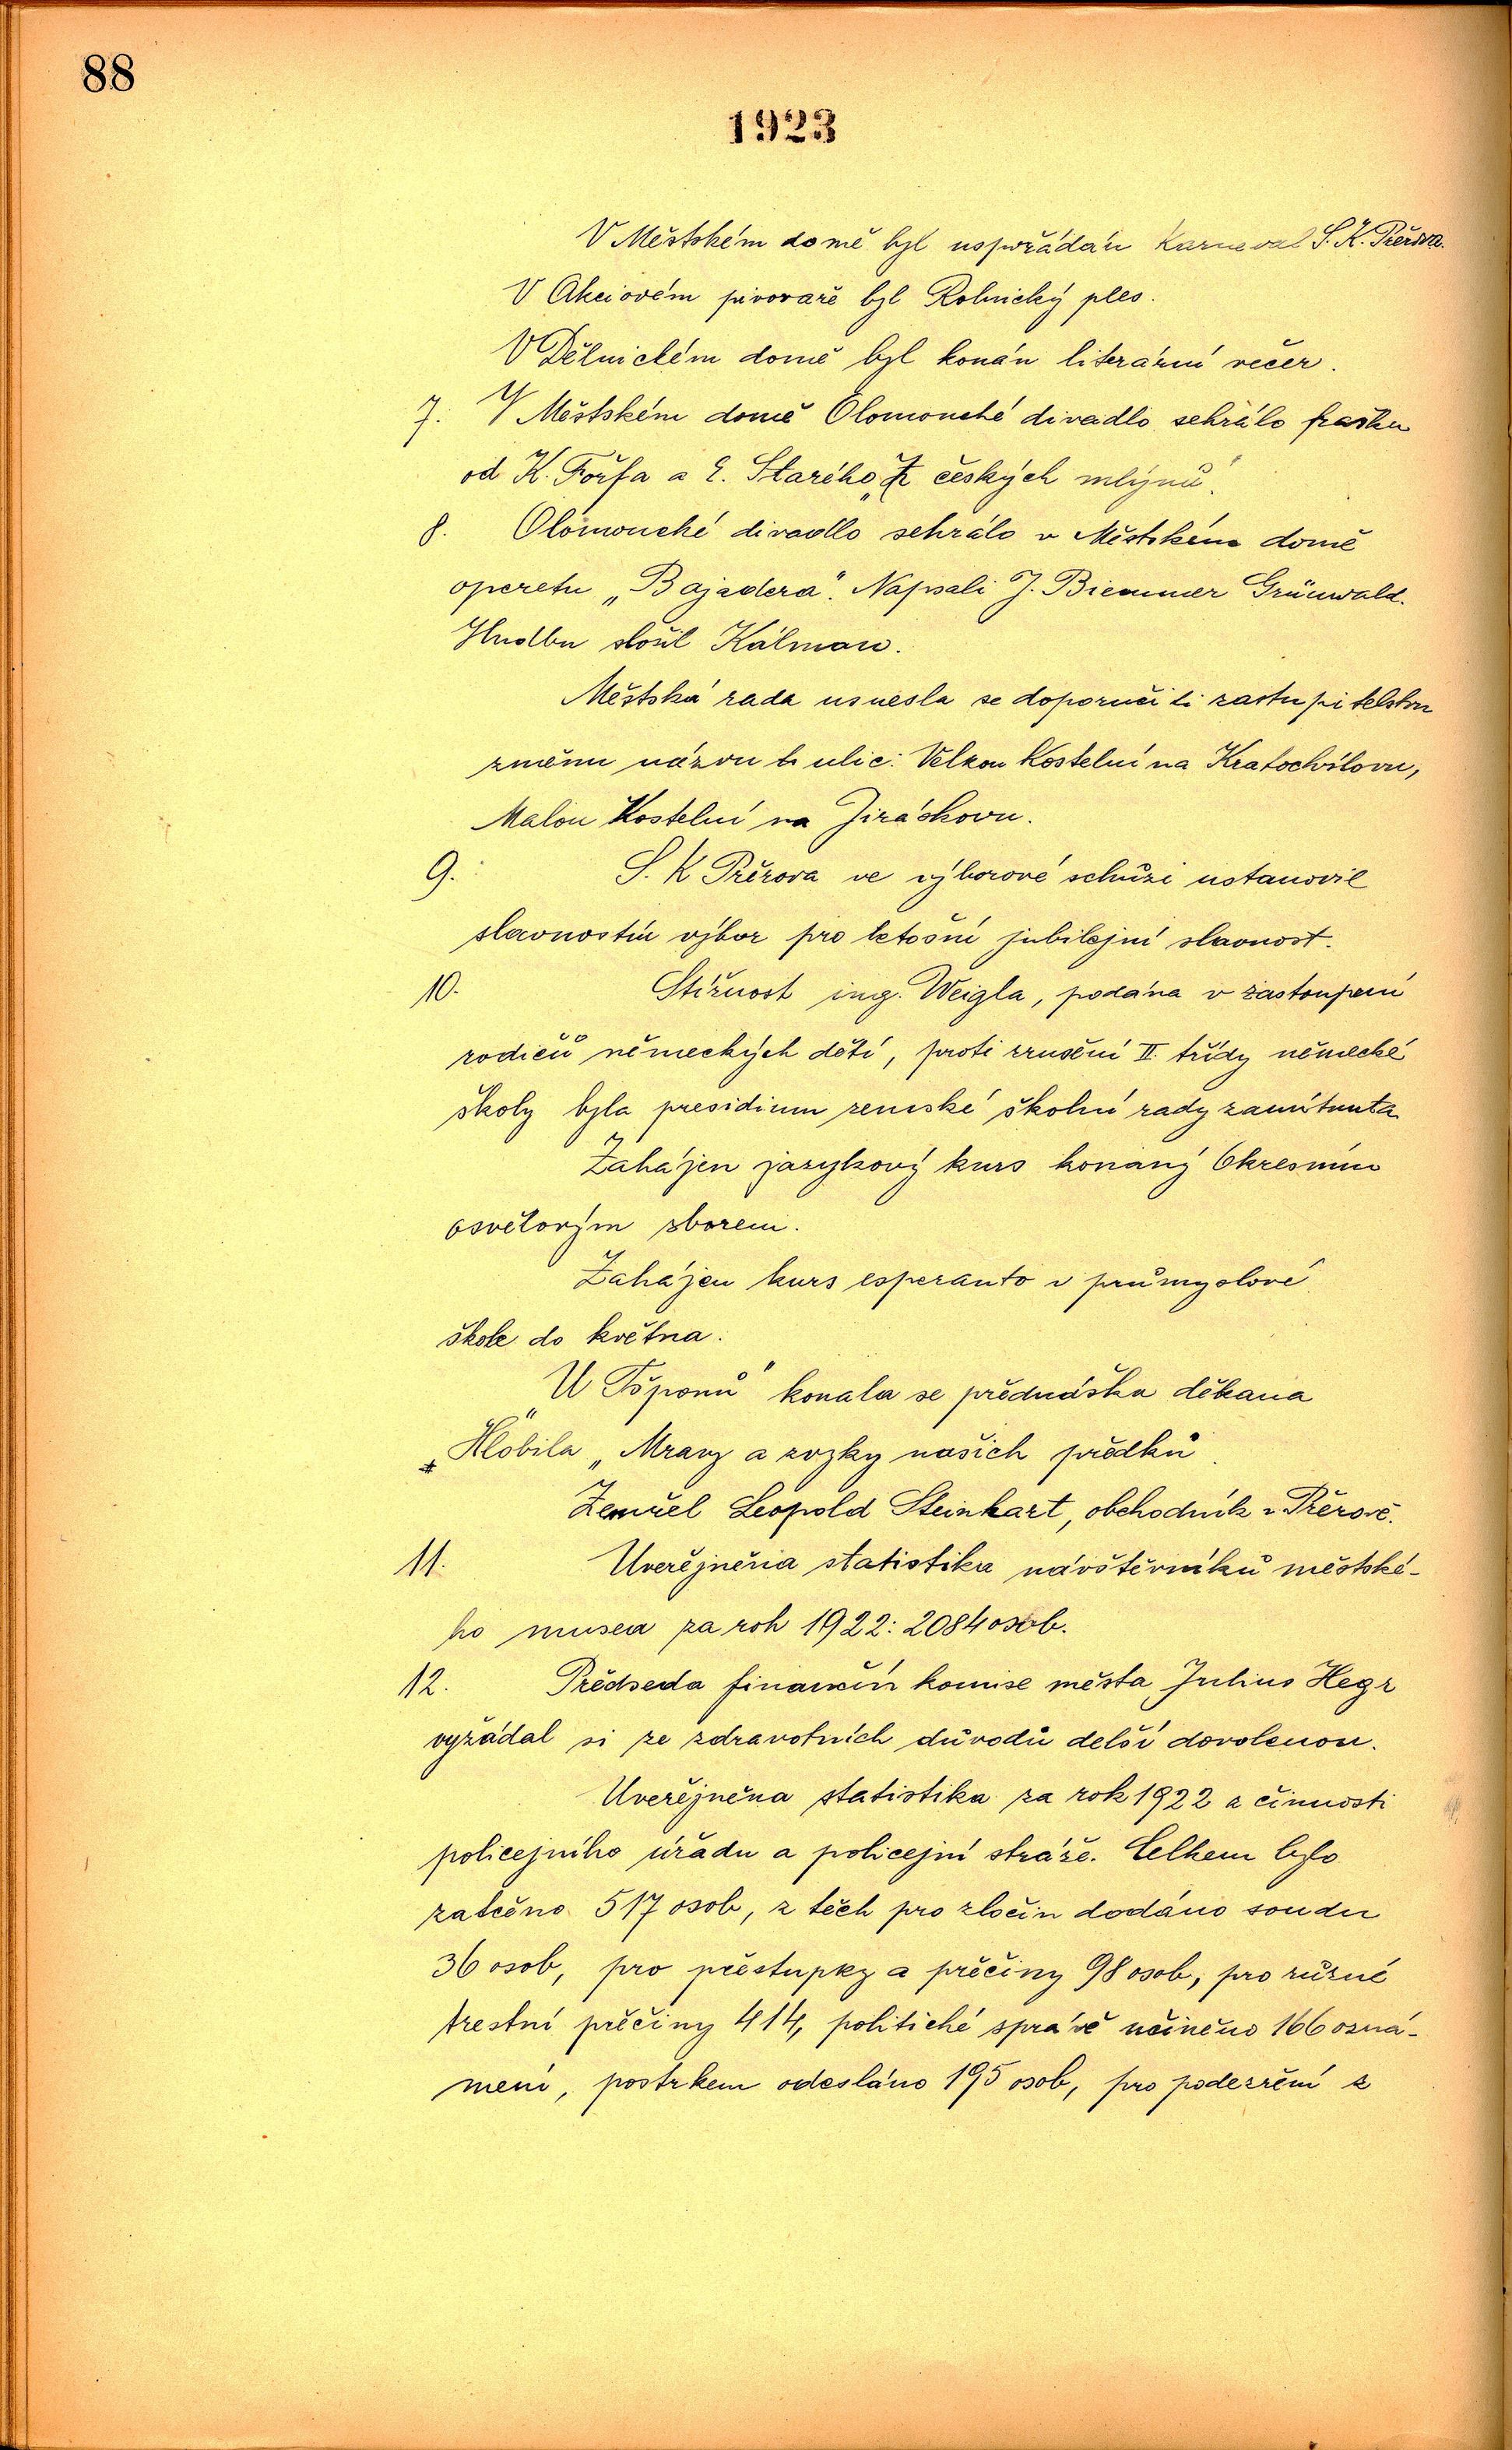 88
1923
V Městském domě byl uspořádán Karneval S. K. Přerova.
V Akciovém pivovaře byl Rolnický ples.
V Dělnickém domě byl konán literární večer.
7. V Městském domě Olomoucké divadlo sehrálo frašku
od K. Fořta a E. Starého „Z českých mlýnů".
8. Olomoucké divadlo sehrálo v Městském domě
operetu „Bajadera". Napsali J. Brammer Grünwald.
Hudbu složil Kálman.
Městská rada usnesla se doporučiti zastupitelstvu
změnu názvu ulic: Velkou Kostelní na Kratochvílovu,
Malou Kostelní na Jiráskovu.
9. S. K Přerova ve výborové schůzi ustanovil
slavnostní výbor pro letošní jubilejní slavnost.
10. Stížnost ing. Weigla, podána v zastoupení
rodičů německých dětí, proti zrušení II. třídy německé
školy byla presidium zemské školní rady zamítnuta
Zahájen jazykový kurs konaný Okresním
osvětovým sborem.
Zahájen kurs esperanto v průmyslové
škole do května.
„U Tšponů" konala se přednáška děkana
Hlobila „Mravy a zvyky našich předků
Zemřel Leopold Steinhart, obchodník v Přerově.
11. Uveřejněna statistika návštěvníků městské-
ho musea za rok 1922: 2084 osob.
12. Předseda finanční komise města Julius Hegr
vyžádal si ze zdravotních důvodů delší dovolenou.
Uveřejněna statistika za rok 1922 z činnosti
policejního úřadu a policejní stráže. Celkem bylo
zatčeno 517 osob, z těch pro zločin dodáno soudu
36 osob, pro přestupky a přečiny 98 osob, pro různé
trestní přečiny 414, politické správě učiněno 166 ozná-
mení, postrkem odesláno 195 osob, pro podezření z